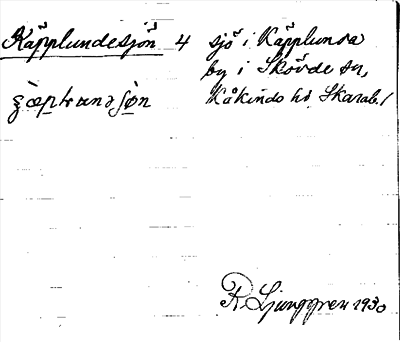 Käpplundesjön 4 sjö i Käpplunda
by i Skövde sn,
Kåkinds hd Skarab. l
R Ljunggren 1930